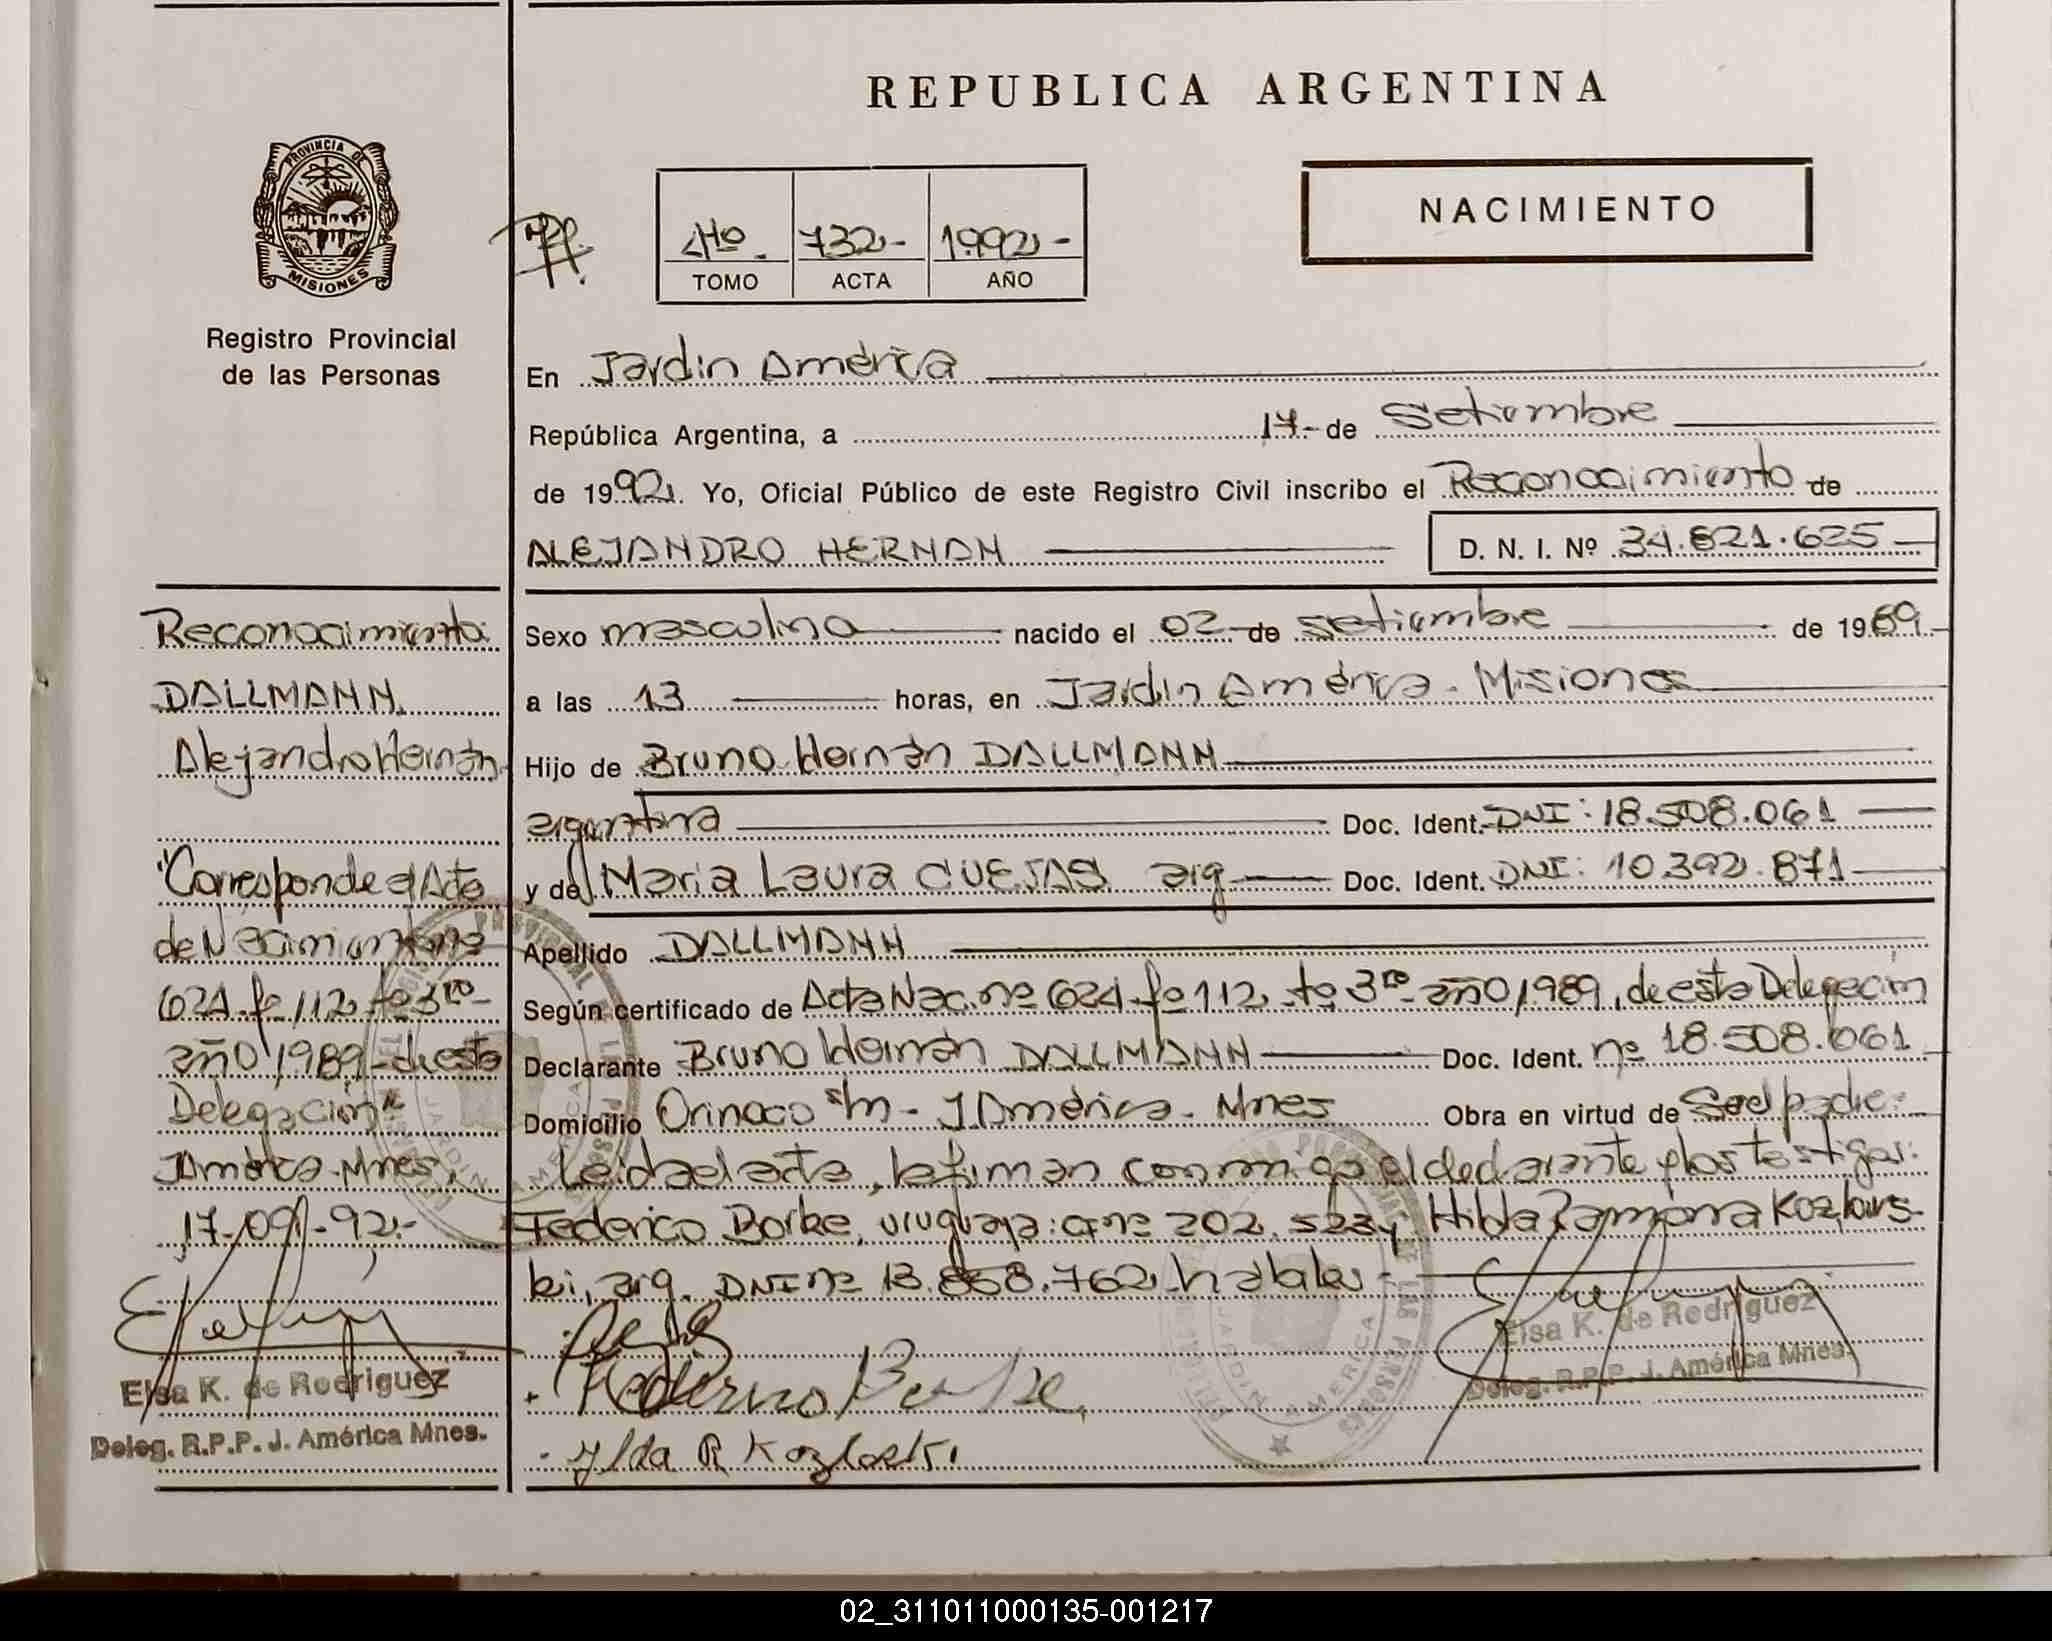 REPUBLICA ARGENTINA
PROVINCIA DE
MISIONES
NACIMIENTO
4to. 732- 1992-
TOMO ACTA AÑO
Registro Provincial
de las Personas
En Jardin América
República Argentina, a 17- de Setiembre
de 1992. Yo, Oficial Público de este Registro Civil inscribo el Reconocimiento de
ALEJANDRO HERNAN D. N. I. Nº 34.821.625
Sexo masculino nacido el 02 de setiembre de 1989
a las 13 horas, en Jardin América - Misiones
Hijo de Bruno Hernán DALLMANN
argentina Doc. Ident. DNI: 18.508.061
y de Maria Laura CUEJAS arg Doc. Ident. DNI: 10.392.871
Apellido DALLMANN
Según certificado de Acta Nac. nº 624 fº 112 tº 3ro año 1989, de esta Delegación
Declarante Bruno Hernán DALLMANN Doc. Ident. nº 18.508.061
Domicilio Orinoco s/n - J. América - Mnes Obra en virtud de Ser el padre.
Leida el acta, la firman conmigo el declarante y los testigos:
Federico Borke, uruguaya: nº 202. y Hilda Ramona Kozlows-
ki, arg. DNI nº 13.858.762 hábiles -
Federico Borke
Ylda R Kozloski
Elsa K. de Rodriguez
Deleg. R.P.P. J. América Mnes.
Reconocimiento
DALLMANN
Alejandro Hernán
"Corresponde al Acta
de Nacimiento nº
624 fº 112 tº 3ro
año 1989 - de esta
Delegación"
J. América - Mnes,
17-09-92.-
Elsa K. de Rodriguez
Deleg. R.P.P. J. América Mnes.
02_311011000135-001217